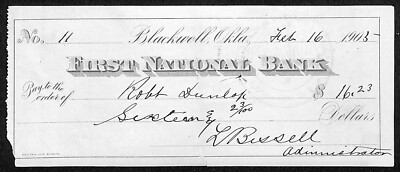 No. 11 Blackwell, Okla, Feb 16 1905
FIRST NATIONAL BANK
Pay to the order of Robt Dunlop $ 16.23
Sixteen & 23/100 Dollars
L Bissell
Administrator